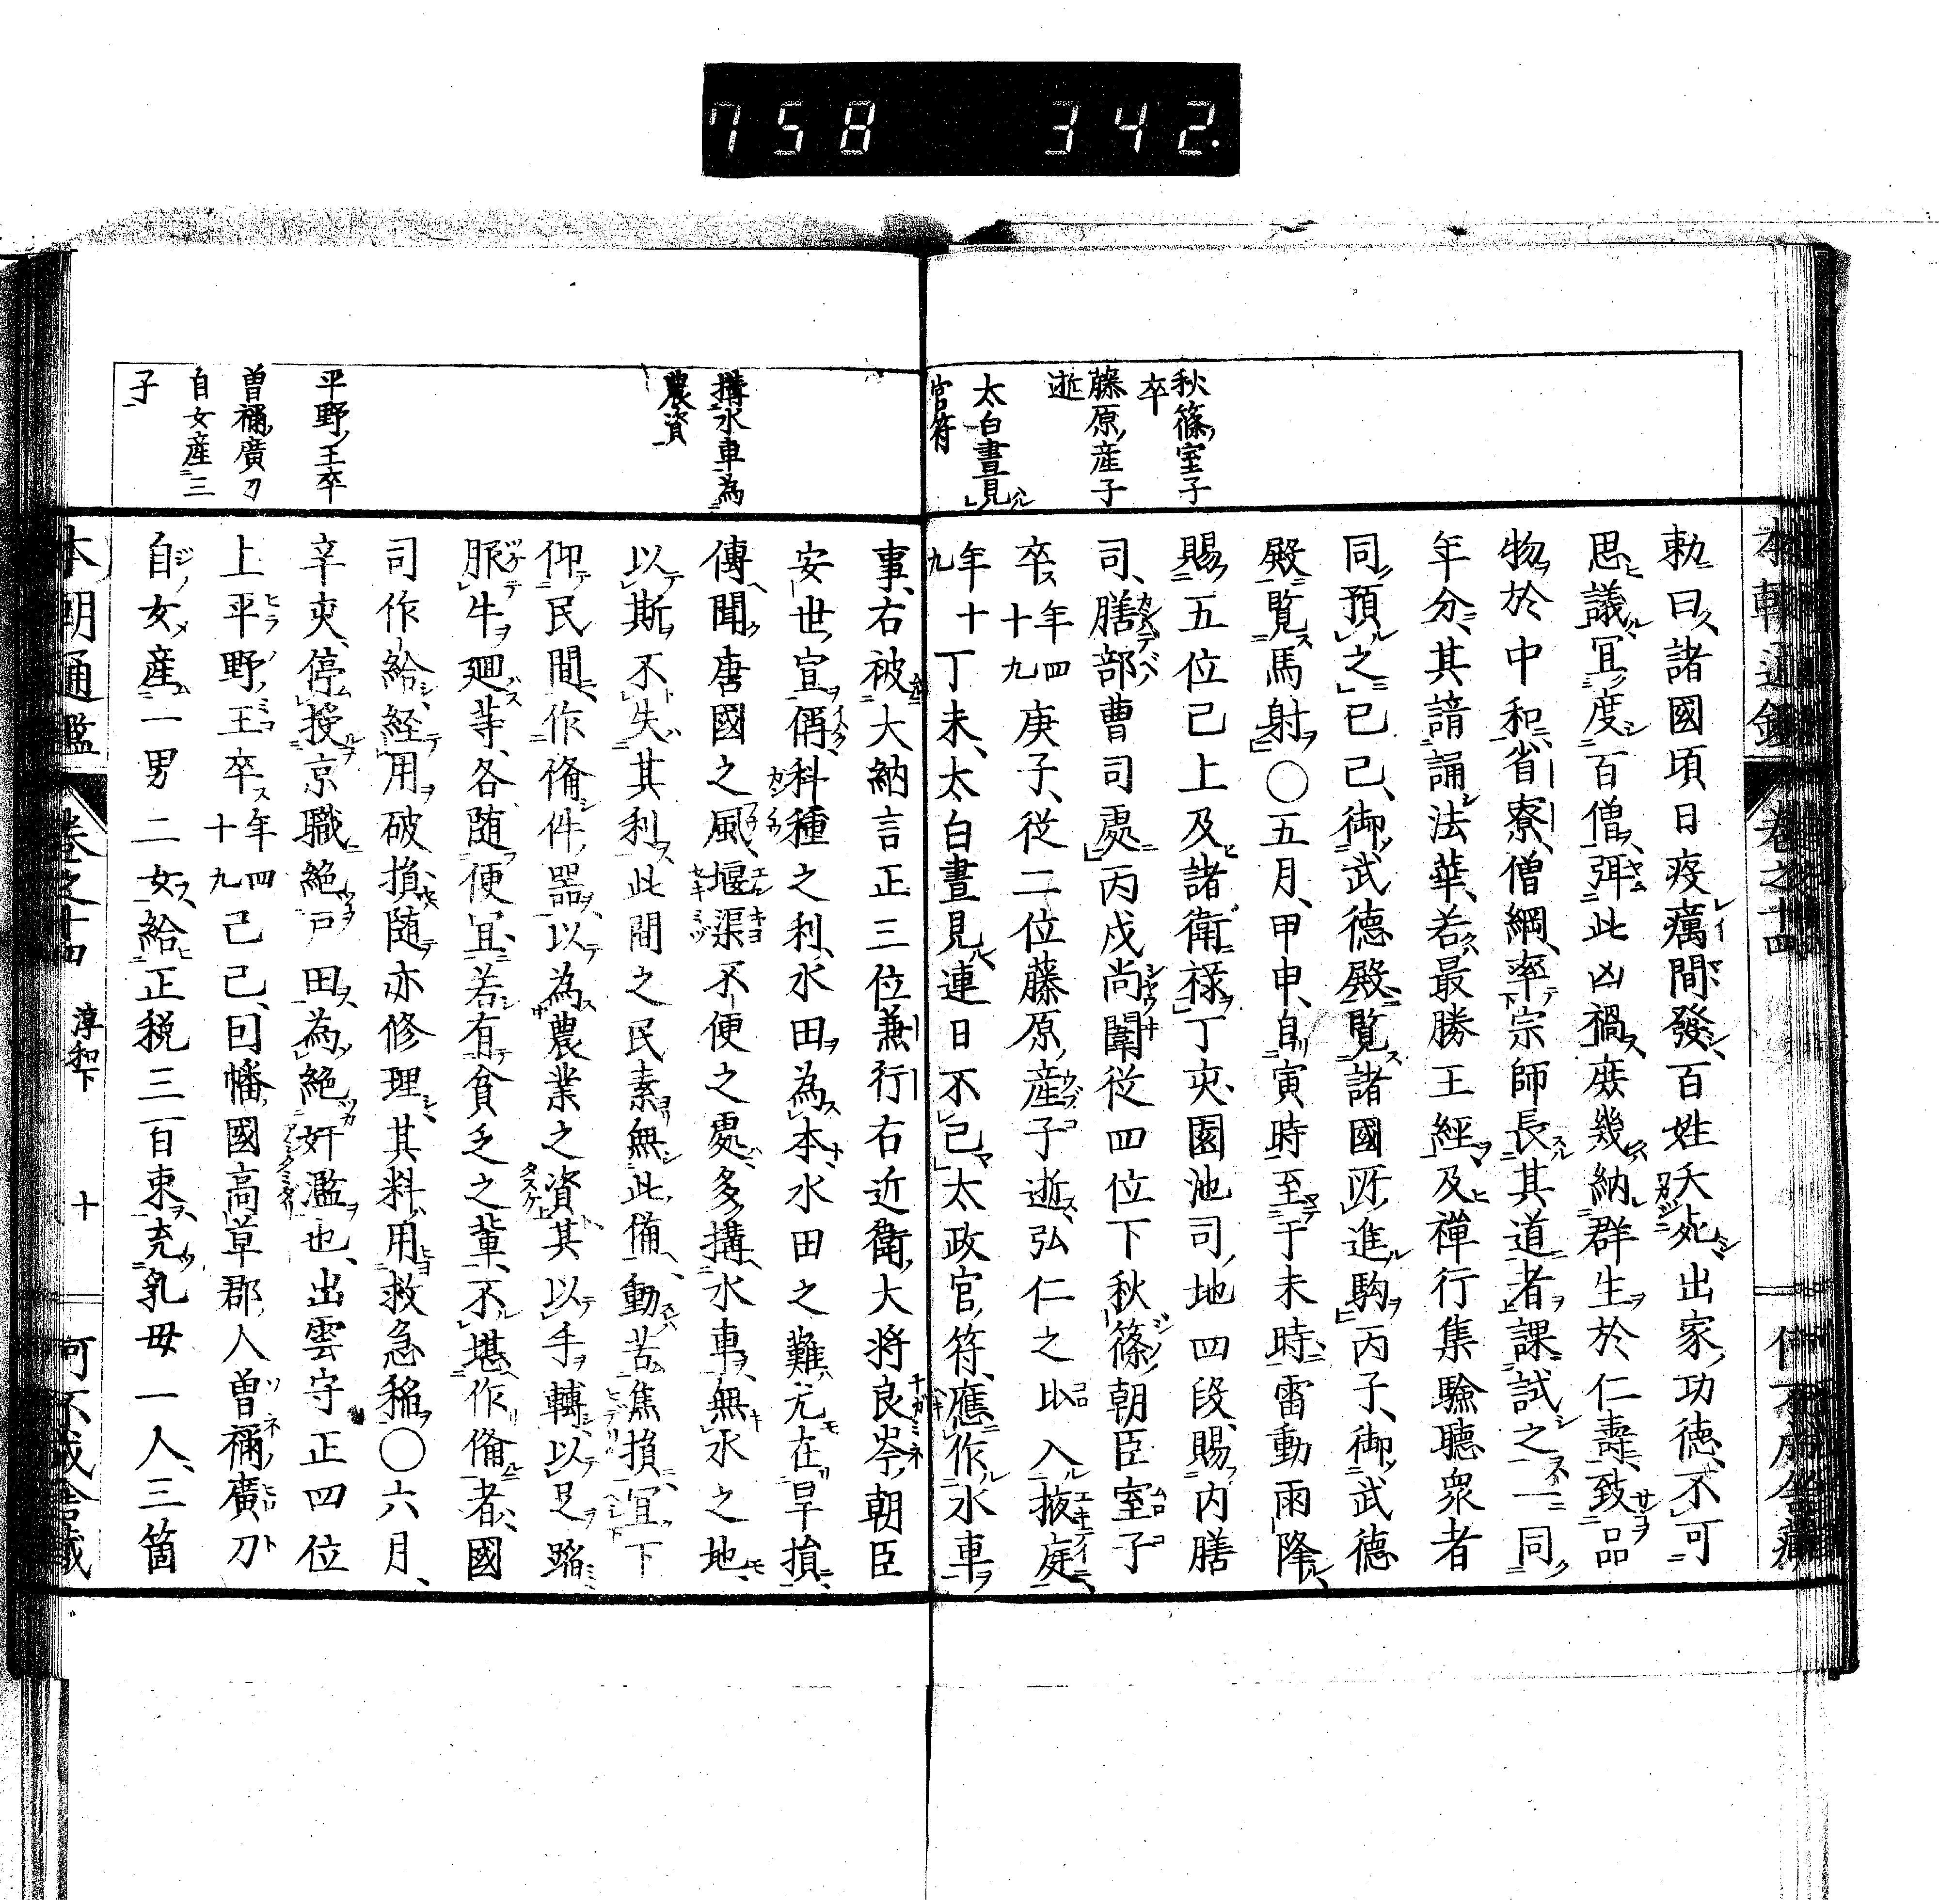 758 342.
秋篠室子
卒
藤原産子
逝
太白晝見
官符
勅曰諸國頃日疫癘間發百姓夭死出家功德不可
思議宜度百僧弭此凶禍庻幾納群生於仁壽致品
物於中和省寮僧綱率宗師長其道者課試之一同
年分其諳誦法華若最勝王經及禪行集驗聽衆者
同預之己巳御武德殿覧諸國所進駒丙子御武德
殿覧馬射〇五月甲申自寅時至于未時雷動雨降
賜五位已上及諸衛禄丁亥園池司地四段賜内膳
司膳部曹司處丙戌尚闈從四位下秋篠朝臣室子
卒年四十九庚子從二位藤原産子逝弘仁之比入掖庭
年十九丁未太白晝見連日不已太政官符應作水車
搆水車為
農資
平野王卒
曽祢廣刀
自女産三
子
事右被大納言正三位兼行右近衛大将良岑朝臣
安世宣偁科種之利水田為本水田之難尤在旱損
傳聞唐國之風堰渠不便之處多搆水車無水之地
以斯不失其利此間之民素無此備動苦焦損宜下
仰民間作備件器以為農業之資其以手轉以足踏
服牛廻等各随便宜若有貧乏之輩不堪作備者國
司作給経用破損随亦修理其料用救急稲〇六月
辛亥停授京職絶戸田為絶奸濫也出雲守正四位
上平野王卒年四十九己巳因幡國高草郡人曽祢廣刀
自女産一男二女給正税三百束充乳母一人三箇
本朝通鑑 卷之十四 淳和下 十